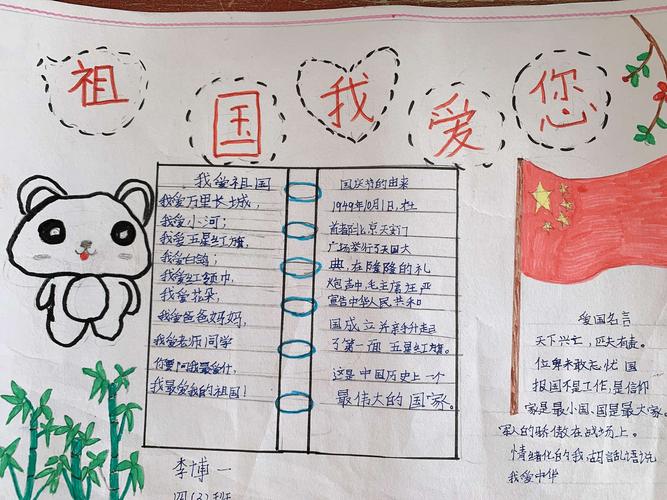 祖国我爱您
我爱祖国
我爱万里长城，
我爱小河；
我爱五星红旗，
我爱白鸽；
我爱红领巾，
我爱花朵，
我爱爸爸妈妈，
我爱老师同学
你要问我最爱什，
我最爱我的祖国！
国庆节的由来
1949年10月1日，在
首都北京天安门
广场举行了开国大
典，在隆隆的礼
炮声中，毛主席庄严
宣告中华人民共和
国成立并亲手升起
了第一面五星红旗。
这是中国历史上一个
最伟大的国家。
爱国名言
天下兴亡，匹夫有责。
位卑未敢忘忧国
报国不是工作，是信仰
家是最小国，国是最大家。
军人的骄傲在战场上。
情绪化的我，胡言乱语说
我爱中华
李博一
四(2)班